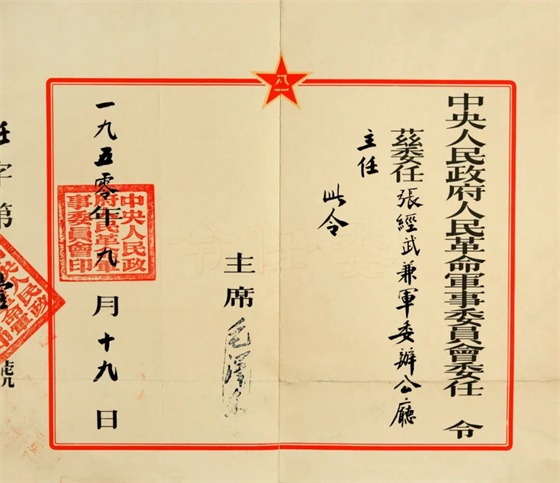 八一
中央人民政府人民革命軍事委員會委任令
茲委任張經武兼軍委辦公廳
主任
此令
主席毛澤東
一九五零年九月十九日
中央人民政府人民革命軍事委員會印
任字第
號